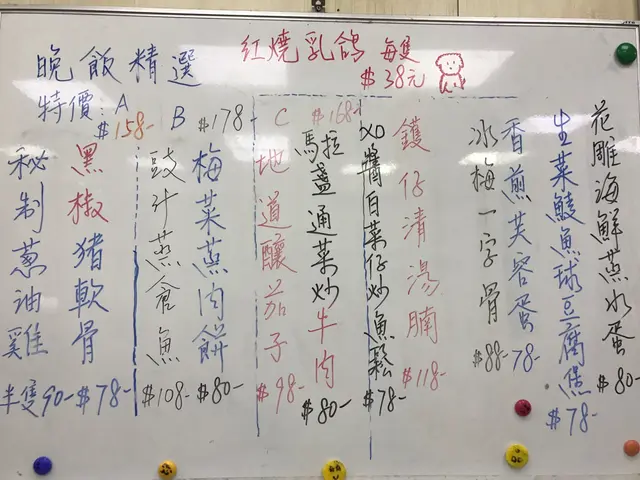 晚飯精選
紅燒乳鴿 每隻
$38元
特價:A
$158-
B $178-
C $168-
秘制蔥油雞
半隻90-
黑椒豬軟骨
$78-
豉汁蒸倉魚
$108-
梅菜蒸肉餅
$80-
地道釀茄子
$98-
馬拉盞通菜炒牛肉
$80-
XO醬白菜仔炒魚鬆
$78-
鑊仔清湯腩
$118-
冰梅一字骨
$88-
香煎芙容蛋
78-
生菜鯪魚球豆腐煲
$78-
花雕海鮮蒸水蛋
$80-